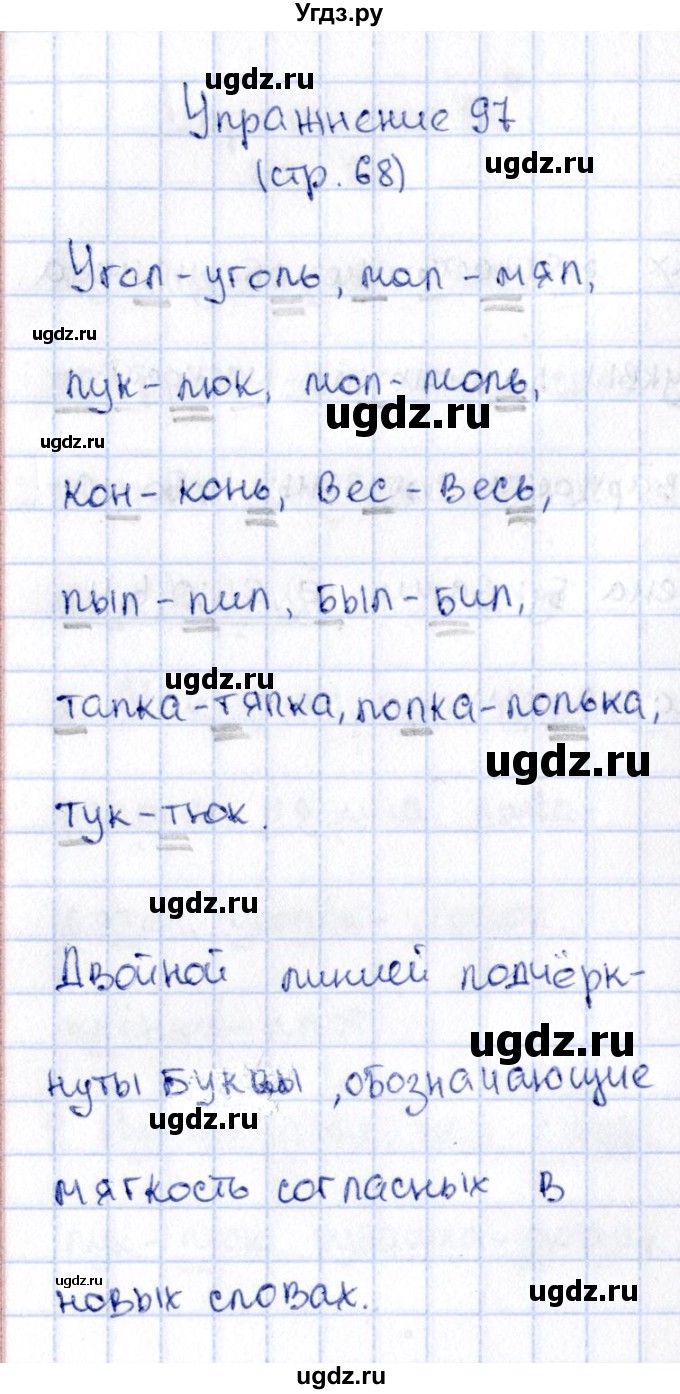 Угдз.ру
ugdz.ru
Упражнение 97
ugdz.ru
(стр. 68)
Угол-уголь, мал-мял,
ugdz.ru
лук-люк, мол-моль,
ugdz.ru
ugdz.ru
кон-конь, Вес-Весь,
пыл-пил, был-бил,
ugdz.ru
тапка-тяпка, полка-полька,
ugdz.ru
тук-тюк.
ugdz.ru
Двойной линией подчёрк-
ugdz.ru
нуты буквы, обозначающие
ugdz.ru
мягкость согласных в
ugdz.ru
ugdz.ru
новых словах.
ugdz.ru